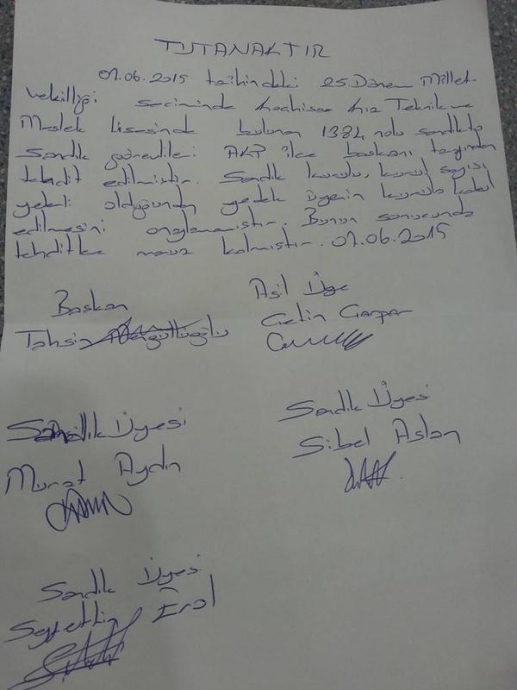 TUTANAKTIR
07.06.2015 tarihindeki 25.Dönem Millet-
vekilliği seçiminde Kız Teknik ve
Meslek lisesinde bulunan 1384 nolu sandıkta
Sandık görevlileri AKP ilçe başkanı tarafından
tehdit edilmiştir. Sandık kurulu, kurul sayısı
yeterli olduğundan yedek üyenin kurula kabul
edilmesini onaylamamıştır. Bunun sonucunda
tehditle maruz kalmıştır. 07.06.2015
Başkan
Asil Üye
Tahsin
Çetin
Sandık Üyesi
Murat Aydın
Sandık Üyesi
Sibel Aslan
Sandık Üyesi
Seyfettin Erol